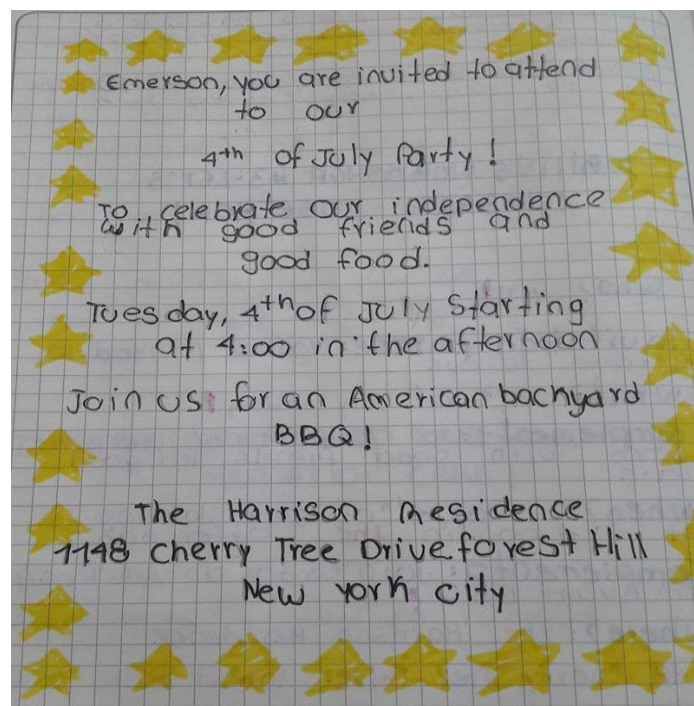 Emerson, you are invited to attend
to our
4th of July Party!
To celebrate our independence
with good friends and
good food.
Tuesday, 4th of July Starting
at 4:00 in the afternoon
Join us for an American bachyard
BBQ!
The Harrison Residence
1148 cherry Tree Drive forest Hill
New york city